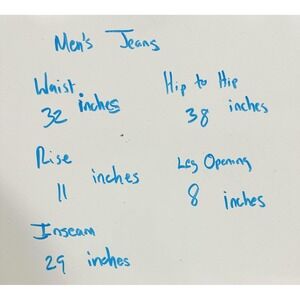 Men's Jeans
Waist
32 inches
Hip to Hip
38 inches
Rise
11 inches
Leg Opening
8 inches
Inseam
29 inches